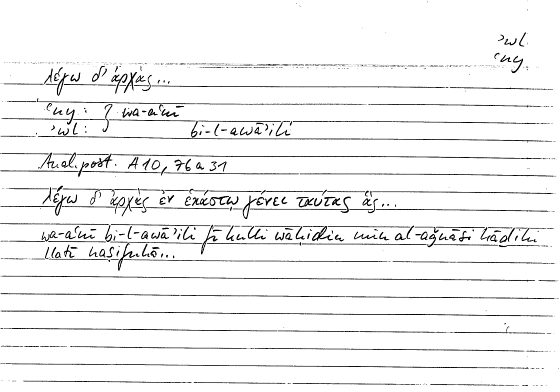 ʾwl
ʿny
λέγω δ' ἀρχὰς...
ʿny : } wa-aʿnī
ʾwl : } bi-l-awāʾili
Anal. post. A 10, 76 a 31
λέγω δ' ἀρχὰς ἐν ἑκάστῳ γένει ταύτας ἃς...
wa-aʿnī bi-l-awāʾili fī kulli wāḥidin min al-aǧnāsi hāḏihi
llatī naṣifuhā...